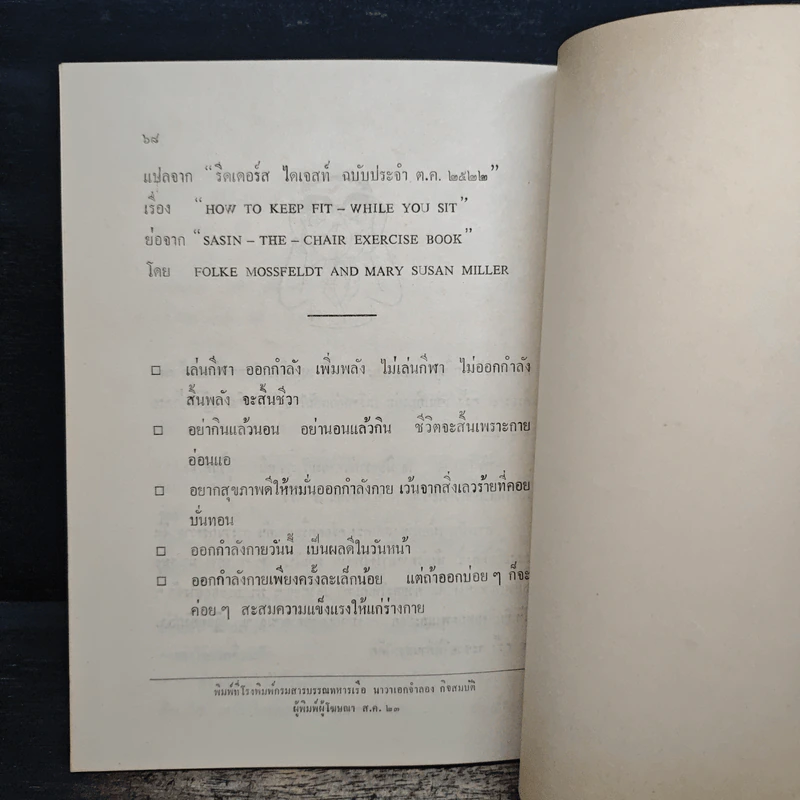 ๖๘
แปลจาก “รีดเดอร์ส ไดเจสท์ ฉบับประจำ ต.ค. ๒๕๒๒”
เรื่อง “HOW TO KEEP FIT – WHILE YOU SIT”
ย่อจาก “SASIN – THE – CHAIR EXERCISE BOOK”
โดย FOLKE MOSSFELDT AND MARY SUSAN MILLER
□ เล่นกีฬา ออกกำลัง เพิ่มพลัง ไม่เล่นกีฬา ไม่ออกกำลัง
สิ้นพลัง จะสิ้นชีวา
□ อย่ากินแล้วนอน อย่านอนแล้วกิน ชีวิตจะสั้นเพราะกาย
อ่อนแอ
□ อยากสุขภาพดีให้หมั่นออกกำลังกาย เว้นจากสิ่งเลวร้ายที่คอย
บั่นทอน
□ ออกกำลังกายวันนี้ เป็นผลดีในวันหน้า
□ ออกกำลังกายเพียงครั้งละเล็กน้อย แต่ถ้าออกบ่อย ๆ ก็จะ
ค่อย ๆ สะสมความแข็งแรงให้แก่ร่างกาย
พิมพ์ที่โรงพิมพ์กรมสารบรรณทหารเรือ นาวาเอกจำลอง กิจสมบัติ
ผู้พิมพ์ผู้โฆษณา ส.ค. ๒๓